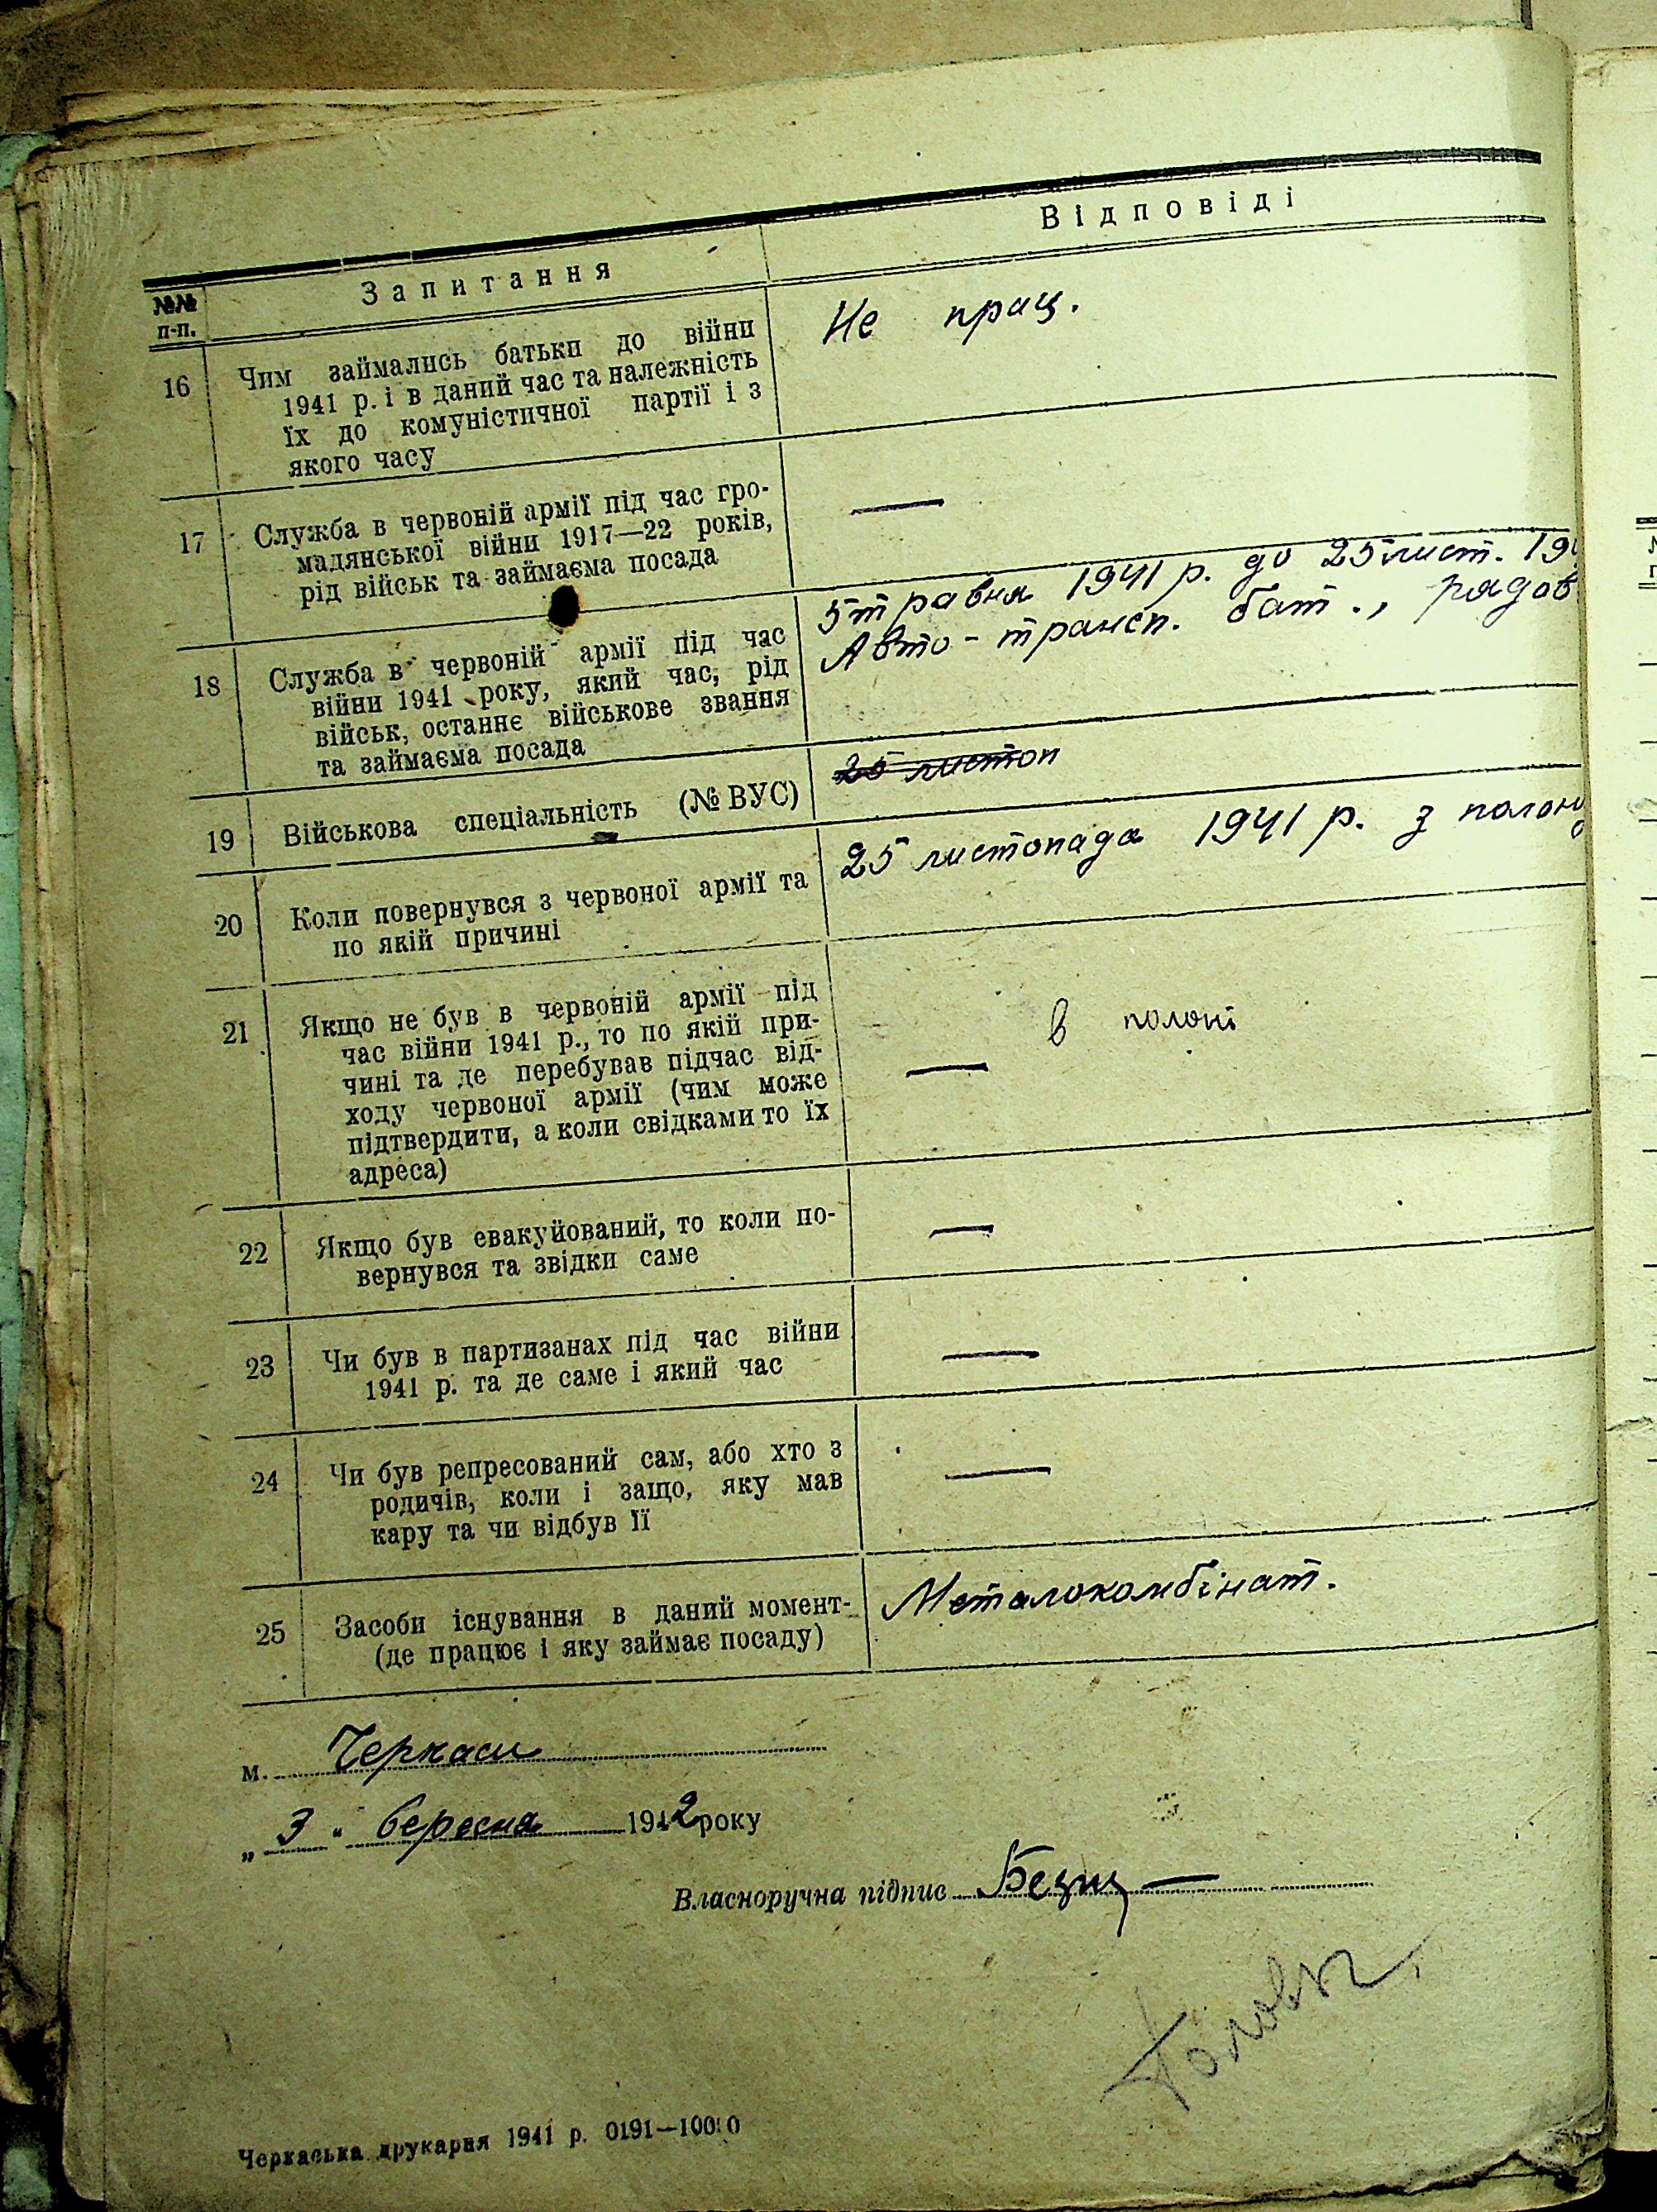 №№ п-п.
Запитання
Відповіді
16
Чим займались батьки до війни
1941 р. і в даний час та належність
їх до комуністичної партії і з
якого часу
Не прац.
17
Служба в червоній армії під час гро-
мадянської війни 1917—22 років,
рід військ та займаєма посада
—
18
Служба в червоній армії під час
війни 1941 року, який час, рід
військ, останнє військове звання
та займаєма посада
5 травня 1941 р. до 25 лист. 19
Авто-трансп. бат., рядов
19
Військова спеціальність (№ ВУС)
25 листоп
20
Коли повернувся з червоної армії та
по якій причині
25 листопада 1941 р. з полону
21
Якщо не був в червоній армії під
час війни 1941 р., то по якій при-
чині та де перебував підчас від-
ходу червоної армії (чим може
підтвердити, а коли свідками то їх
адреса)
в полоні
—
22
Якщо був евакуйований, то коли по-
вернувся та звідки саме
—
23
Чи був в партизанах під час війни
1941 р. та де саме і який час
—
24
Чи був репресований сам, або хто з
родичів, коли і защо, яку мав
кару та чи відбув її
—
25
Засоби існування в даний момент-
(де працює і яку займає посаду)
Металокомбінат.
м. Черкаси
„ 3 " березня 1942 року
Власноручна підпис
Черкаська друкарня 1941 р. 0191—10000